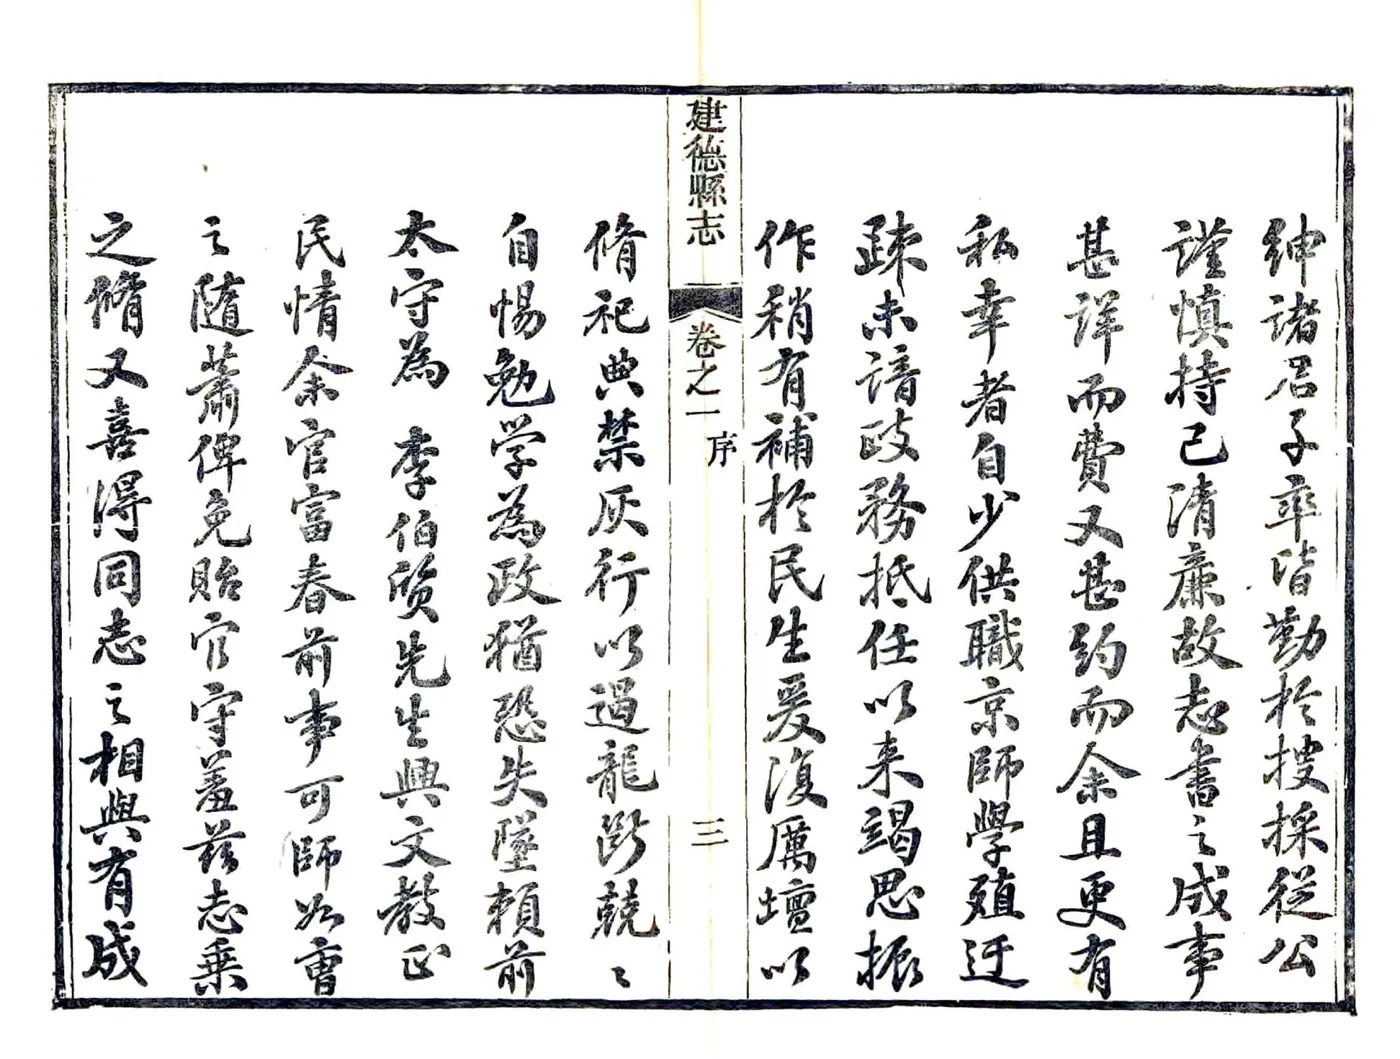 紳諸君子率皆勤於搜採從公
謹慎持己清廉故志書之成事
甚詳而費又甚約而余且更有
私幸者自少供職京師學殖迂
疎未諳政務抵任以来竭思振
作稍有補於民生爰復厲壇以
建德縣志 卷之一 序 三
脩祀典禁灰行以遏龍斷兢〻
自惕勉學為政猶恐失墜賴前
太守為 李伯質先生興文教正
民情余官富春前事可師如曹
之隨蕭俾免貽官守羞茲志乗
之脩又喜得同志之相與有成